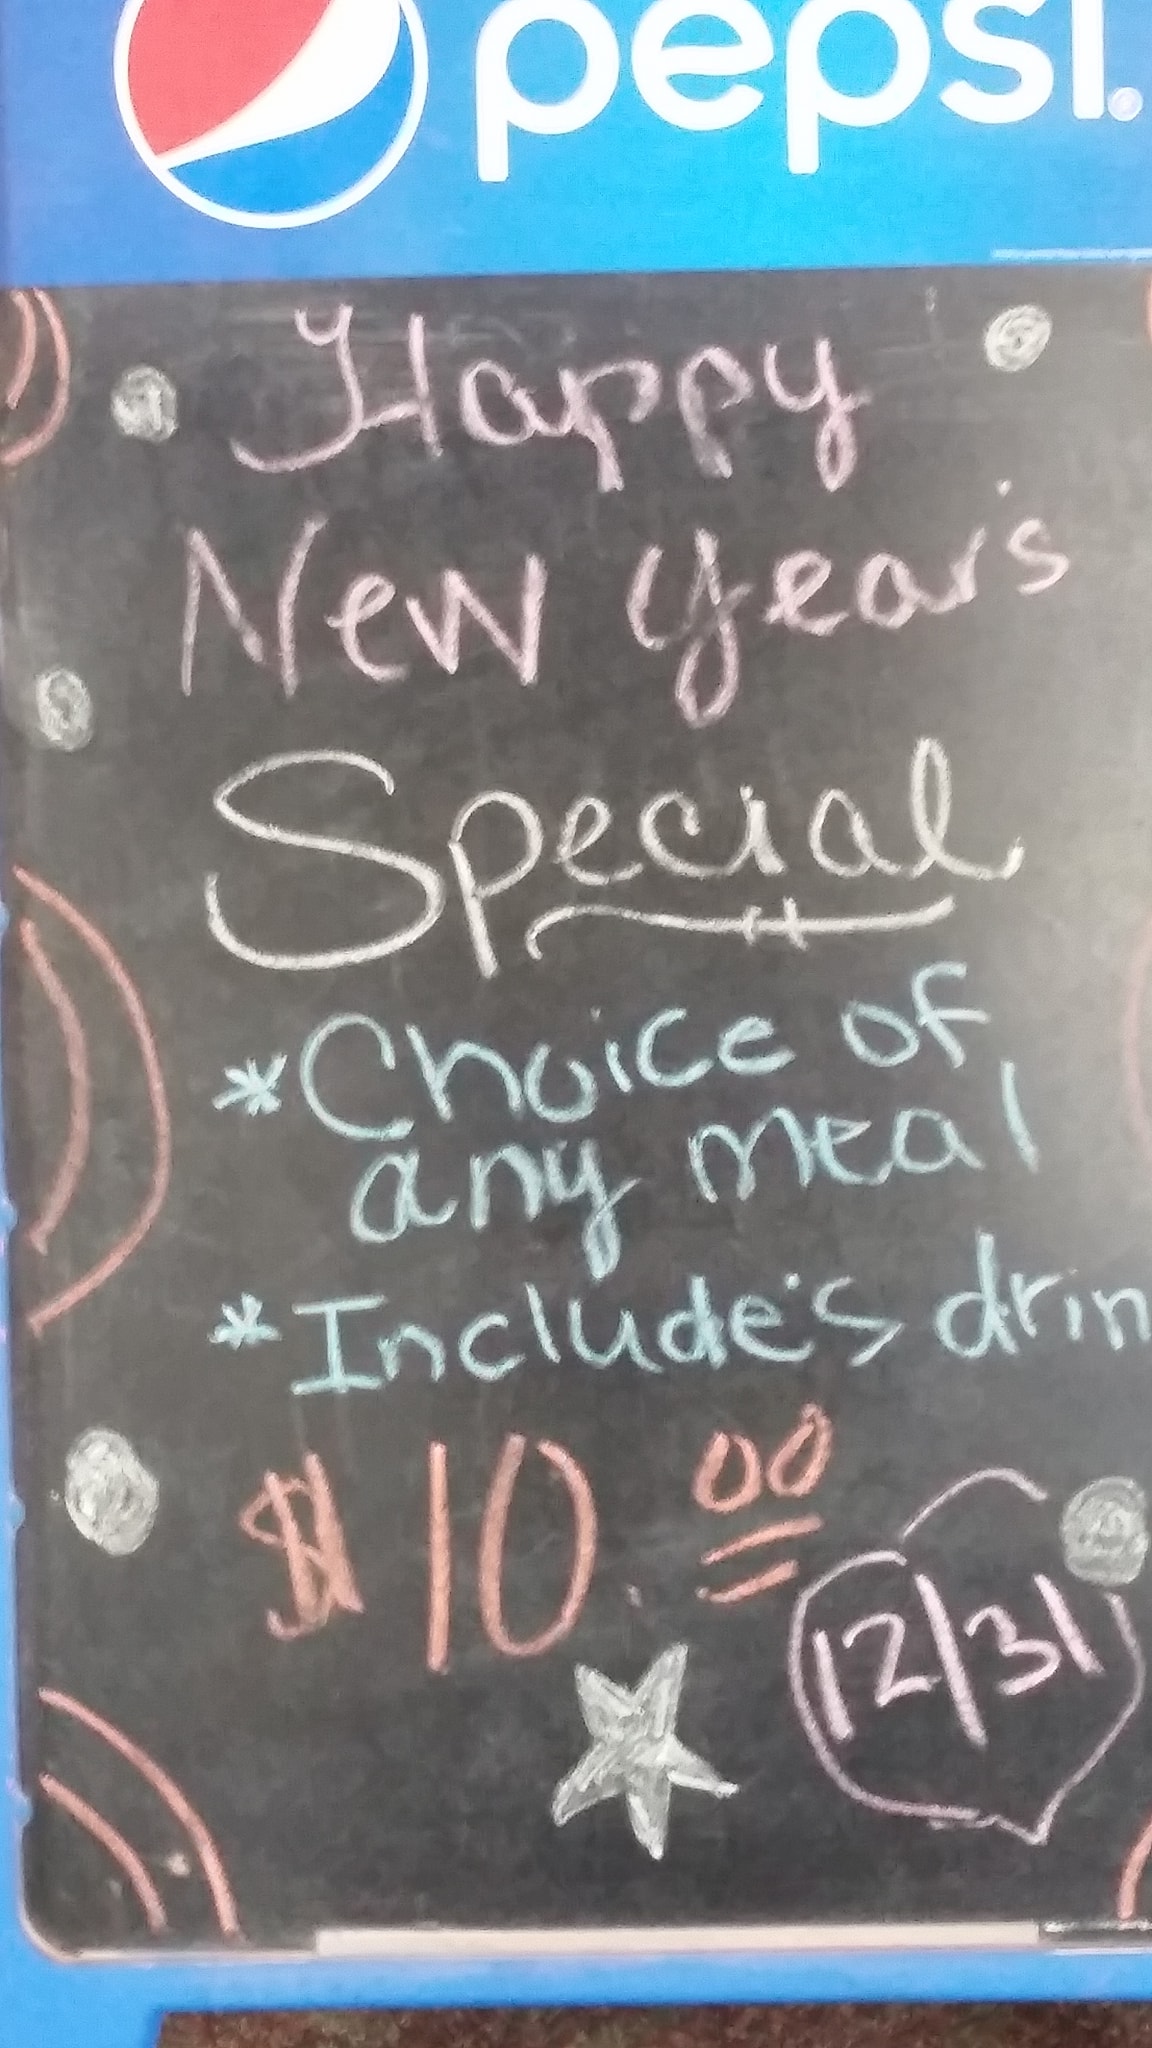 pepsi
Happy
New Year's
Special
*Choice of
any meal
*Include's drin
$10.00
12/31